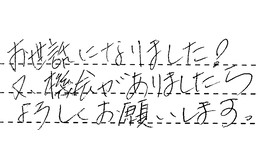 お世話になりました?
又、機会がありましたら
よろしくお願いします。